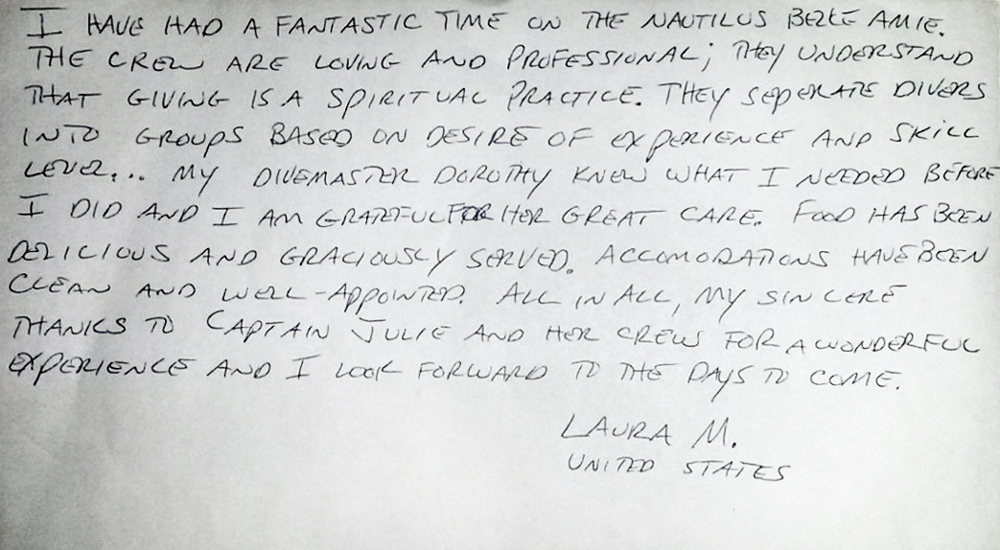 I HAVE HAD A FANTASTIC TIME ON THE NAUTILUS BELLE AMIE.
THE CREW ARE LOVING AND PROFESSIONAL; THEY UNDERSTAND
THAT GIVING IS A SPIRITUAL PRACTICE. THEY SEPERATE DIVERS
INTO GROUPS BASED ON DESIRE OF EXPERIENCE AND SKILL
LEVEL... MY DIVEMASTER DOROTHY KNEW WHAT I NEEDED BEFORE
I DID AND I AM GRATEFUL FOR HER GREAT CARE. FOOD HAS BEEN
DELICIOUS AND GRACIOUSLY SERVED. ACCOMODATIONS HAVE BEEN
CLEAN AND WELL-APPOINTED. ALL IN ALL, MY SINCERE
THANKS TO CAPTAIN JULIE AND HER CREWS FOR A WONDERFUL
EXPERIENCE AND I LOOK FORWARD TO THE DAYS TO COME.
LAURA M.
UNITED STATES